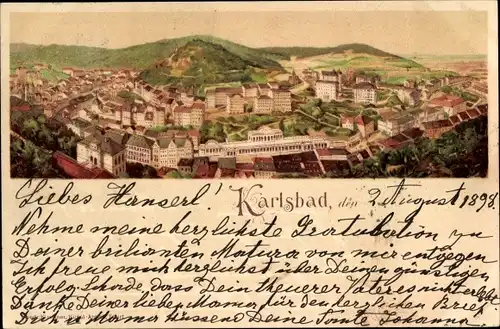 Karlsbad, den 2 August 1898.
Liebes Hanserl!
Nehme meine herzlichste Gratulation zu
Deiner brilianten Matura von mir entgegen
Ich freue mich herzlichst über Deinen günstigen
Erfolg. Schade dass Dein theuerer Vater es nicht erlebt
Danke Deiner lieben Mama für den herzlichen Brief
Dich u Mama küssend Deine Tante Johanna